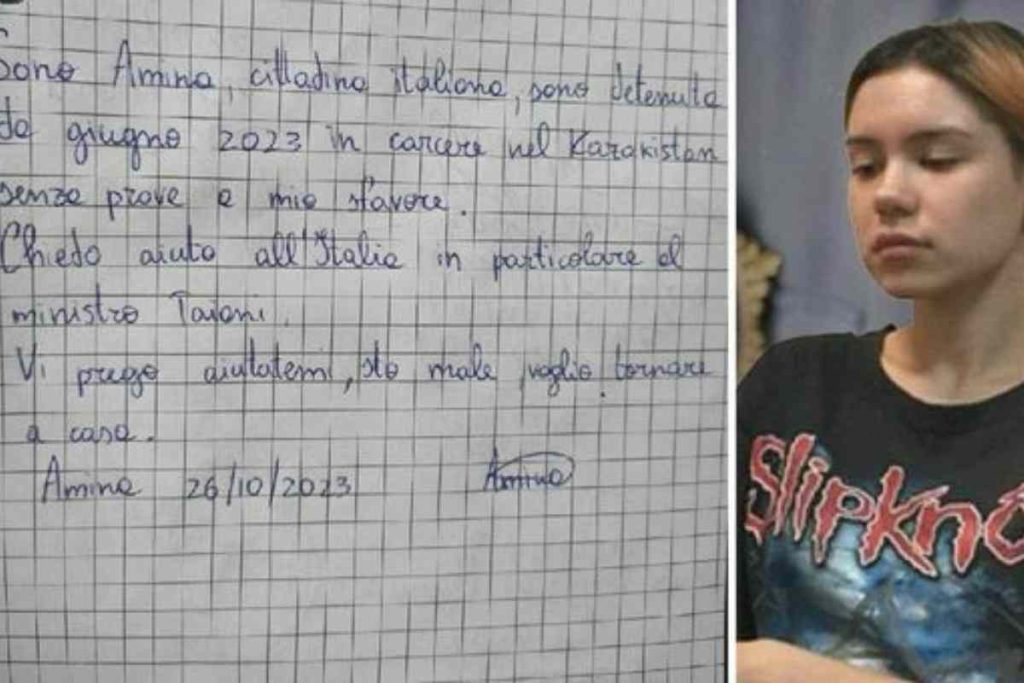 Sono Amina, cittadina italiana, sono detenuta
da giugno 2023 in carcere nel Kazakistan
senza prove a mio sfavore.
Chiedo aiuto all'Italia in particolare al
ministro Taiani.
Vi prego aiutatemi, sto male, voglio tornare
a casa.
Amina 26/10/2023 Amina
Slipkno